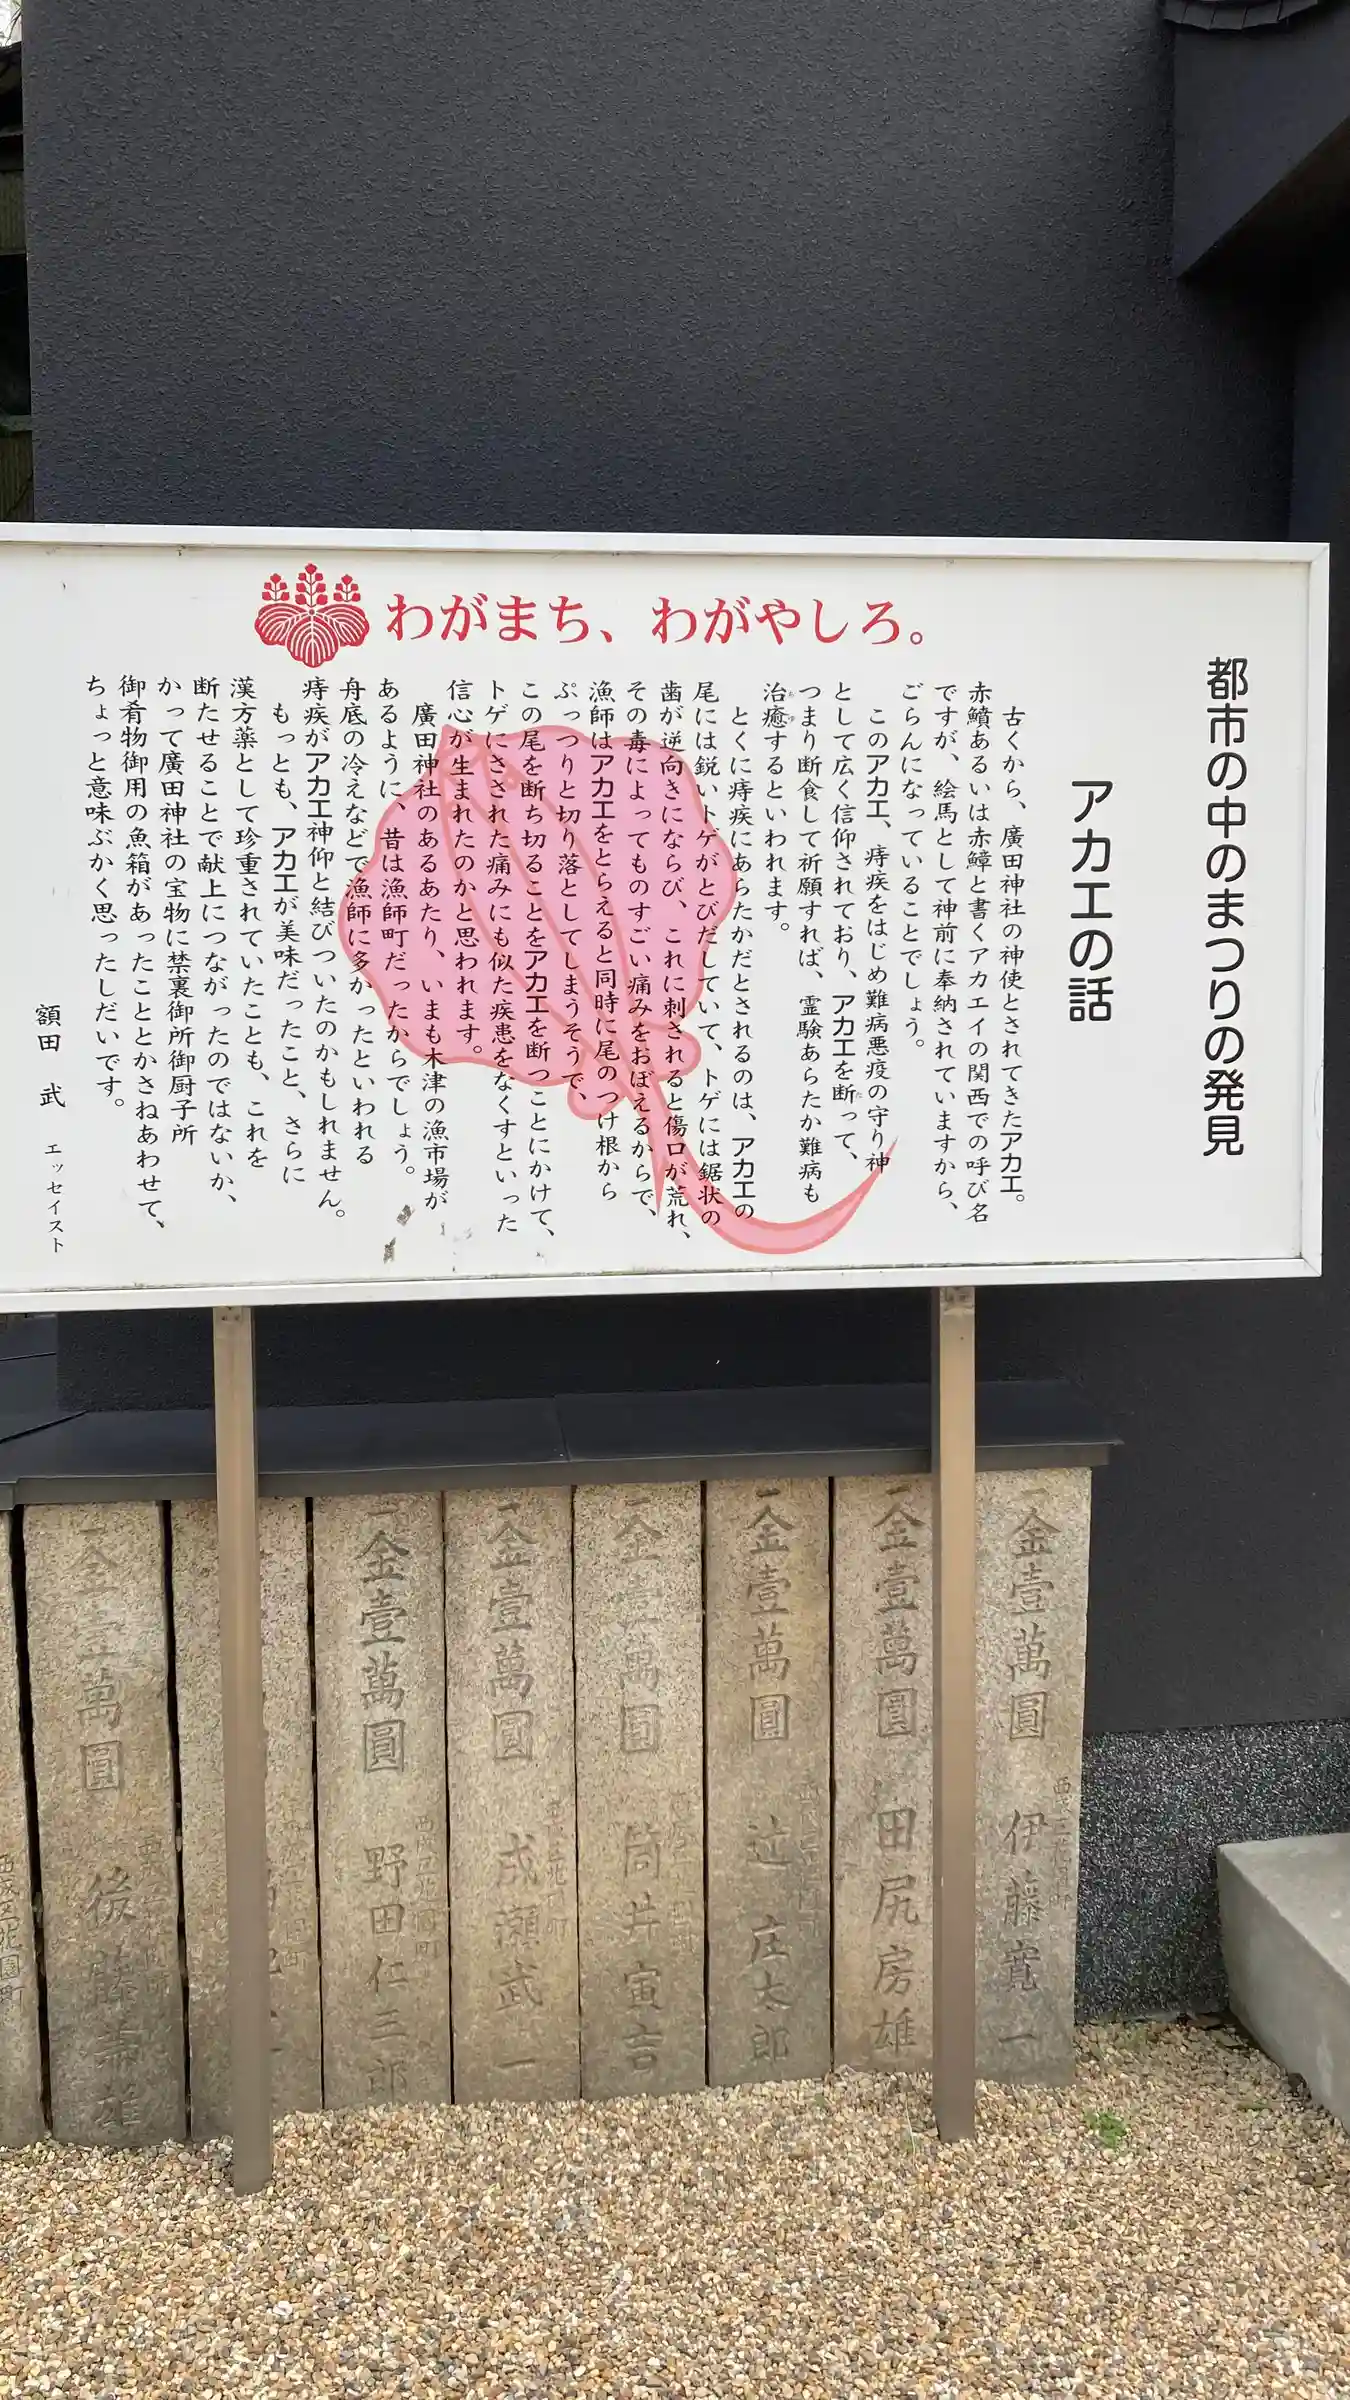 わがまち、わがやしろ。
都市の中のまつりの発見
アカエの話
古くから、廣田神社の神使とされてきたアカエ。
赤鱝あるいは赤鱆と書くアカエイの関西での呼び名
ですが、絵馬として神前に奉納されていますから、
ごらんになっていることでしょう。
このアカエ、痔疾をはじめ難病悪疫の守り神
として広く信仰されており、アカエを断って、
つまり断食して祈願すれば、霊験あらたか難病も
治癒するといわれます。
とくに痔疾にあらたかだとされるのは、アカエの
尾には鋭いトゲがとびだしていて、トゲには鋸状の
歯が逆向きにならび、これに刺されると傷口が荒れ、
その毒によってものすごい痛みをおぼえるからで、
漁師はアカエをとらえると同時に尾のつけ根から
ぷっつりと切り落としてしまうそうで、
この尾を断ち切ることをアカエを断つことにかけて、
トゲにさされた痛みにも似た疾患をなくすといった
信心が生まれたのかと思われます。
廣田神社のあるあたり、いまも木津の漁市場が
あるように、昔は漁師町だったからでしょう。
舟底の冷えなどで漁師に多かったといわれる
痔疾がアカエ神仰と結びついたのかもしれません。
もっとも、アカエが美味だったこと、さらに
漢方薬として珍重されていたことも、これを
断たせることで献上につながったのではないか、
かって廣田神社の宝物に禁裏御所御厨子所
御肴物御用の魚箱があったこととかさねあわせて、
ちょっと意味ぶかく思ったしだいです。
額田 武 エッセイスト
一金壹萬圓 伊藤寛一
一金壹萬圓 田尻房雄
一金壹萬圓 辻庄太郎
一金壹萬圓 筒井寅吉
一金壹萬圓 成瀬武一
一金壹萬圓 野田仁三郎
一金壹萬圓 後藤 雄